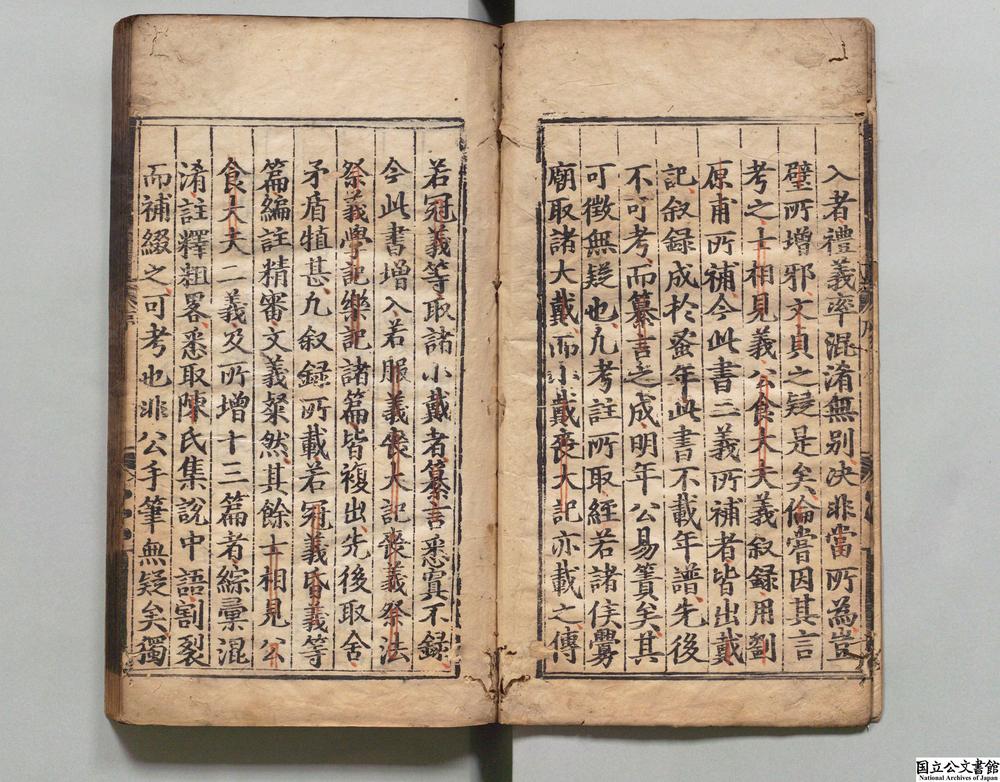 入者禮義率混淆無別决非當所爲豈
璧所增邪文貝之疑是矣倫嘗因其言
考之士相見義公食大夫義叙録用劉
原甫所補今此書二義所補者皆出戴
記叙録成於蚤年此書不載年譜先後
不可考而纂言之成明年公易簀矣其
可徵無疑也凡考註所取經若諸侯釁
廟取諸大戴而小戴喪大記亦載之傳
若冠義等取諸小戴者纂言悉寘不録
今此書增入若服義喪大記喪義祭法
祭義學記樂記諸篇皆複出先後取舍
矛盾特甚凡叙録所載若冠義昏義等
篇編註精審文義粲然其餘士相見公
食大夫二義及所增十三篇者綜彙混
淆註釋粗畧悉取陳氏集說中語割裂
而補綴之可考也非公手筆無疑矣獨
国立公文書館
National Archives of Japan